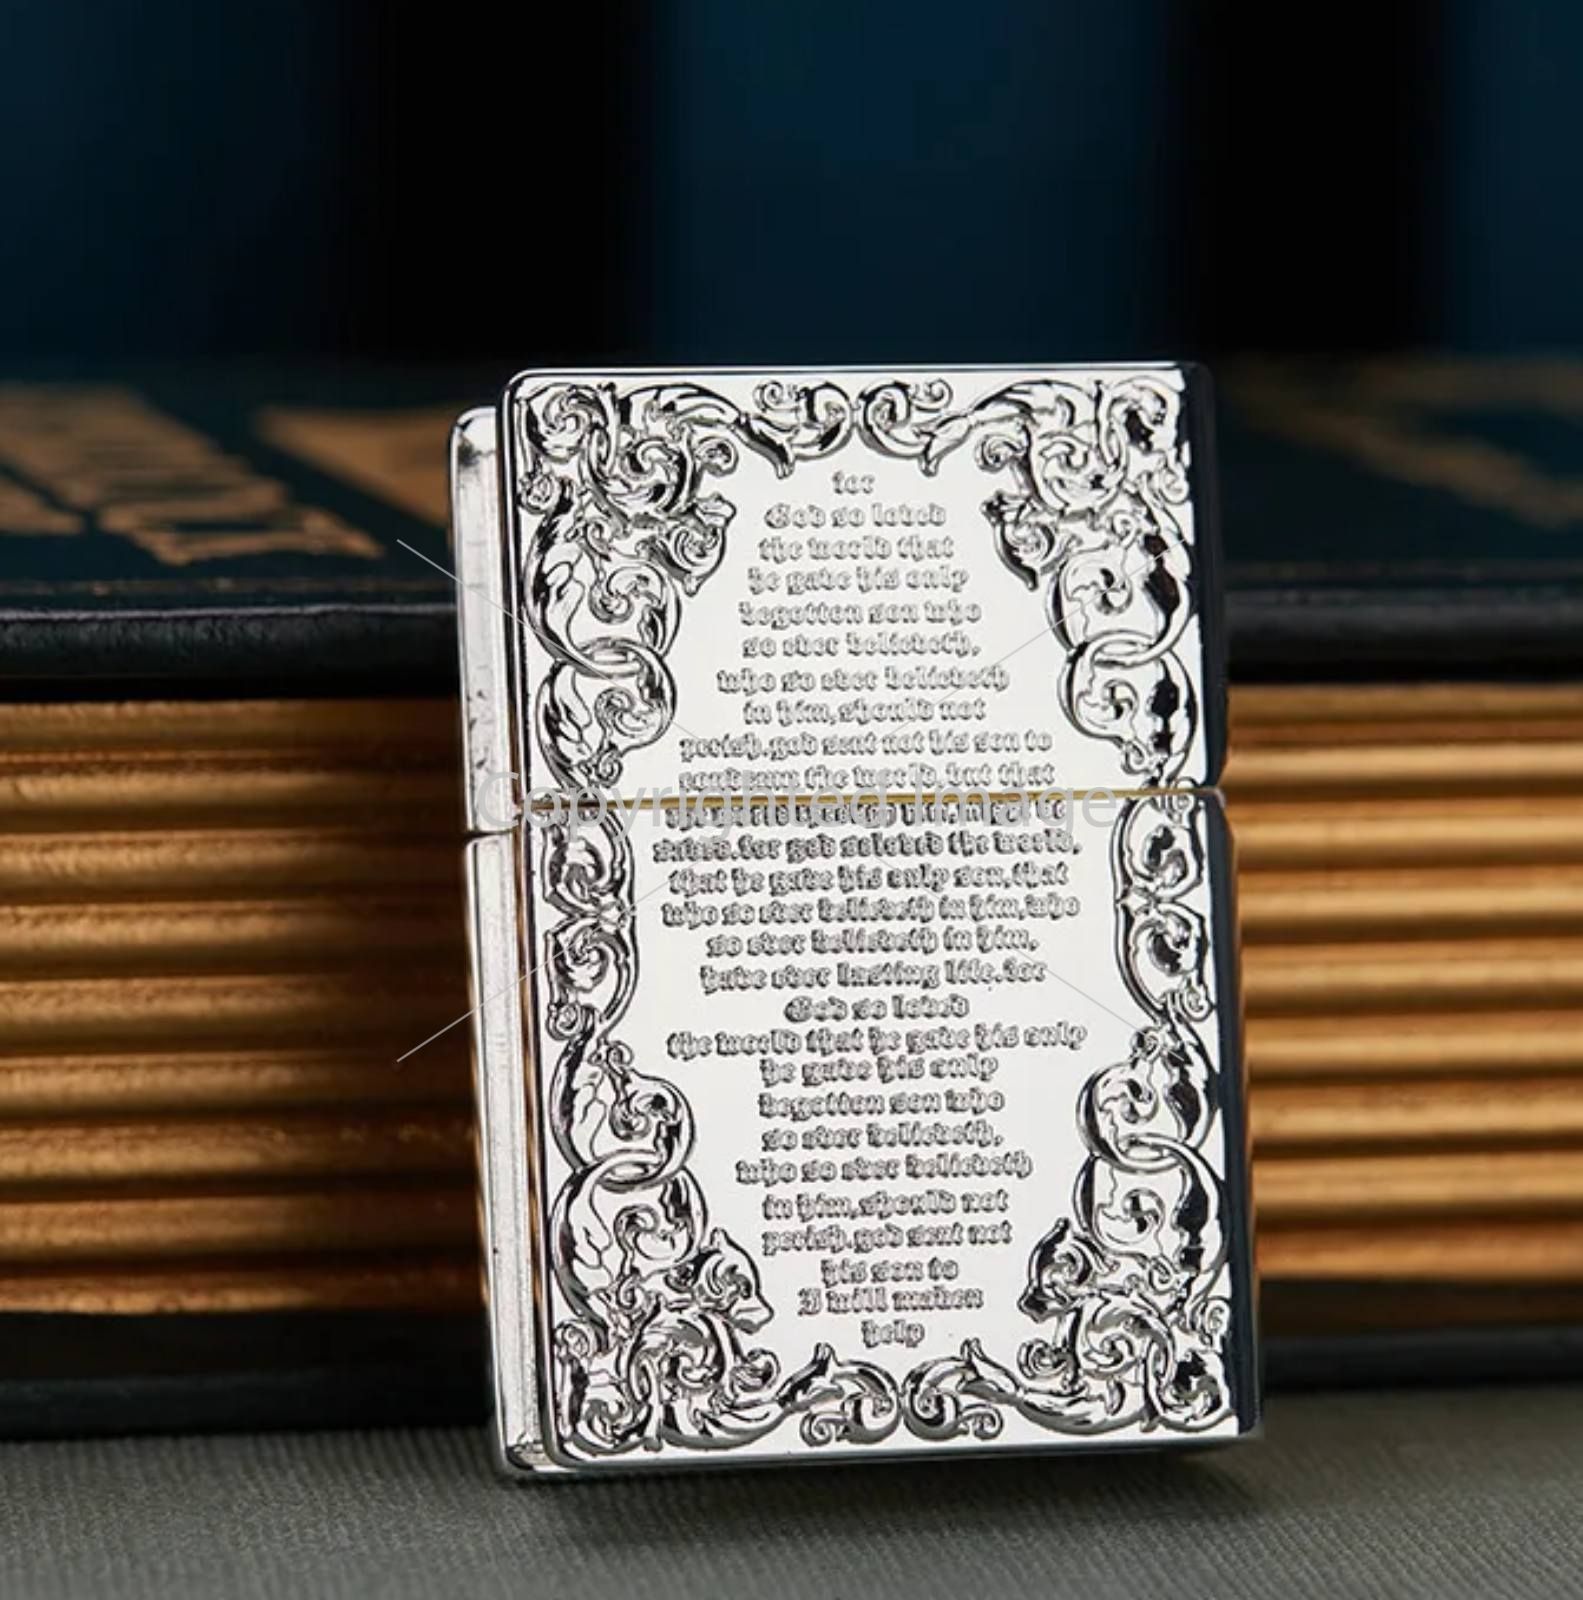 for
God so loved
the world that
he gave his only
begotten son who
so ever believeth,
who so ever believeth
in him, should not
perish.god sent not his son to
condemn the world,but that
Copyrighted Image
the world through him,might be
saved.for god soloved the world,
that he gave his only son,that
who so ever believeth in him,who
so ever believeth in him,
have ever lasting life.for
God so loved
the world that he gave his only
he gave his only
begotten son who
so ever believeth,
who so ever believeth
in him,should not
perish.god sent not
his son to
I will
help